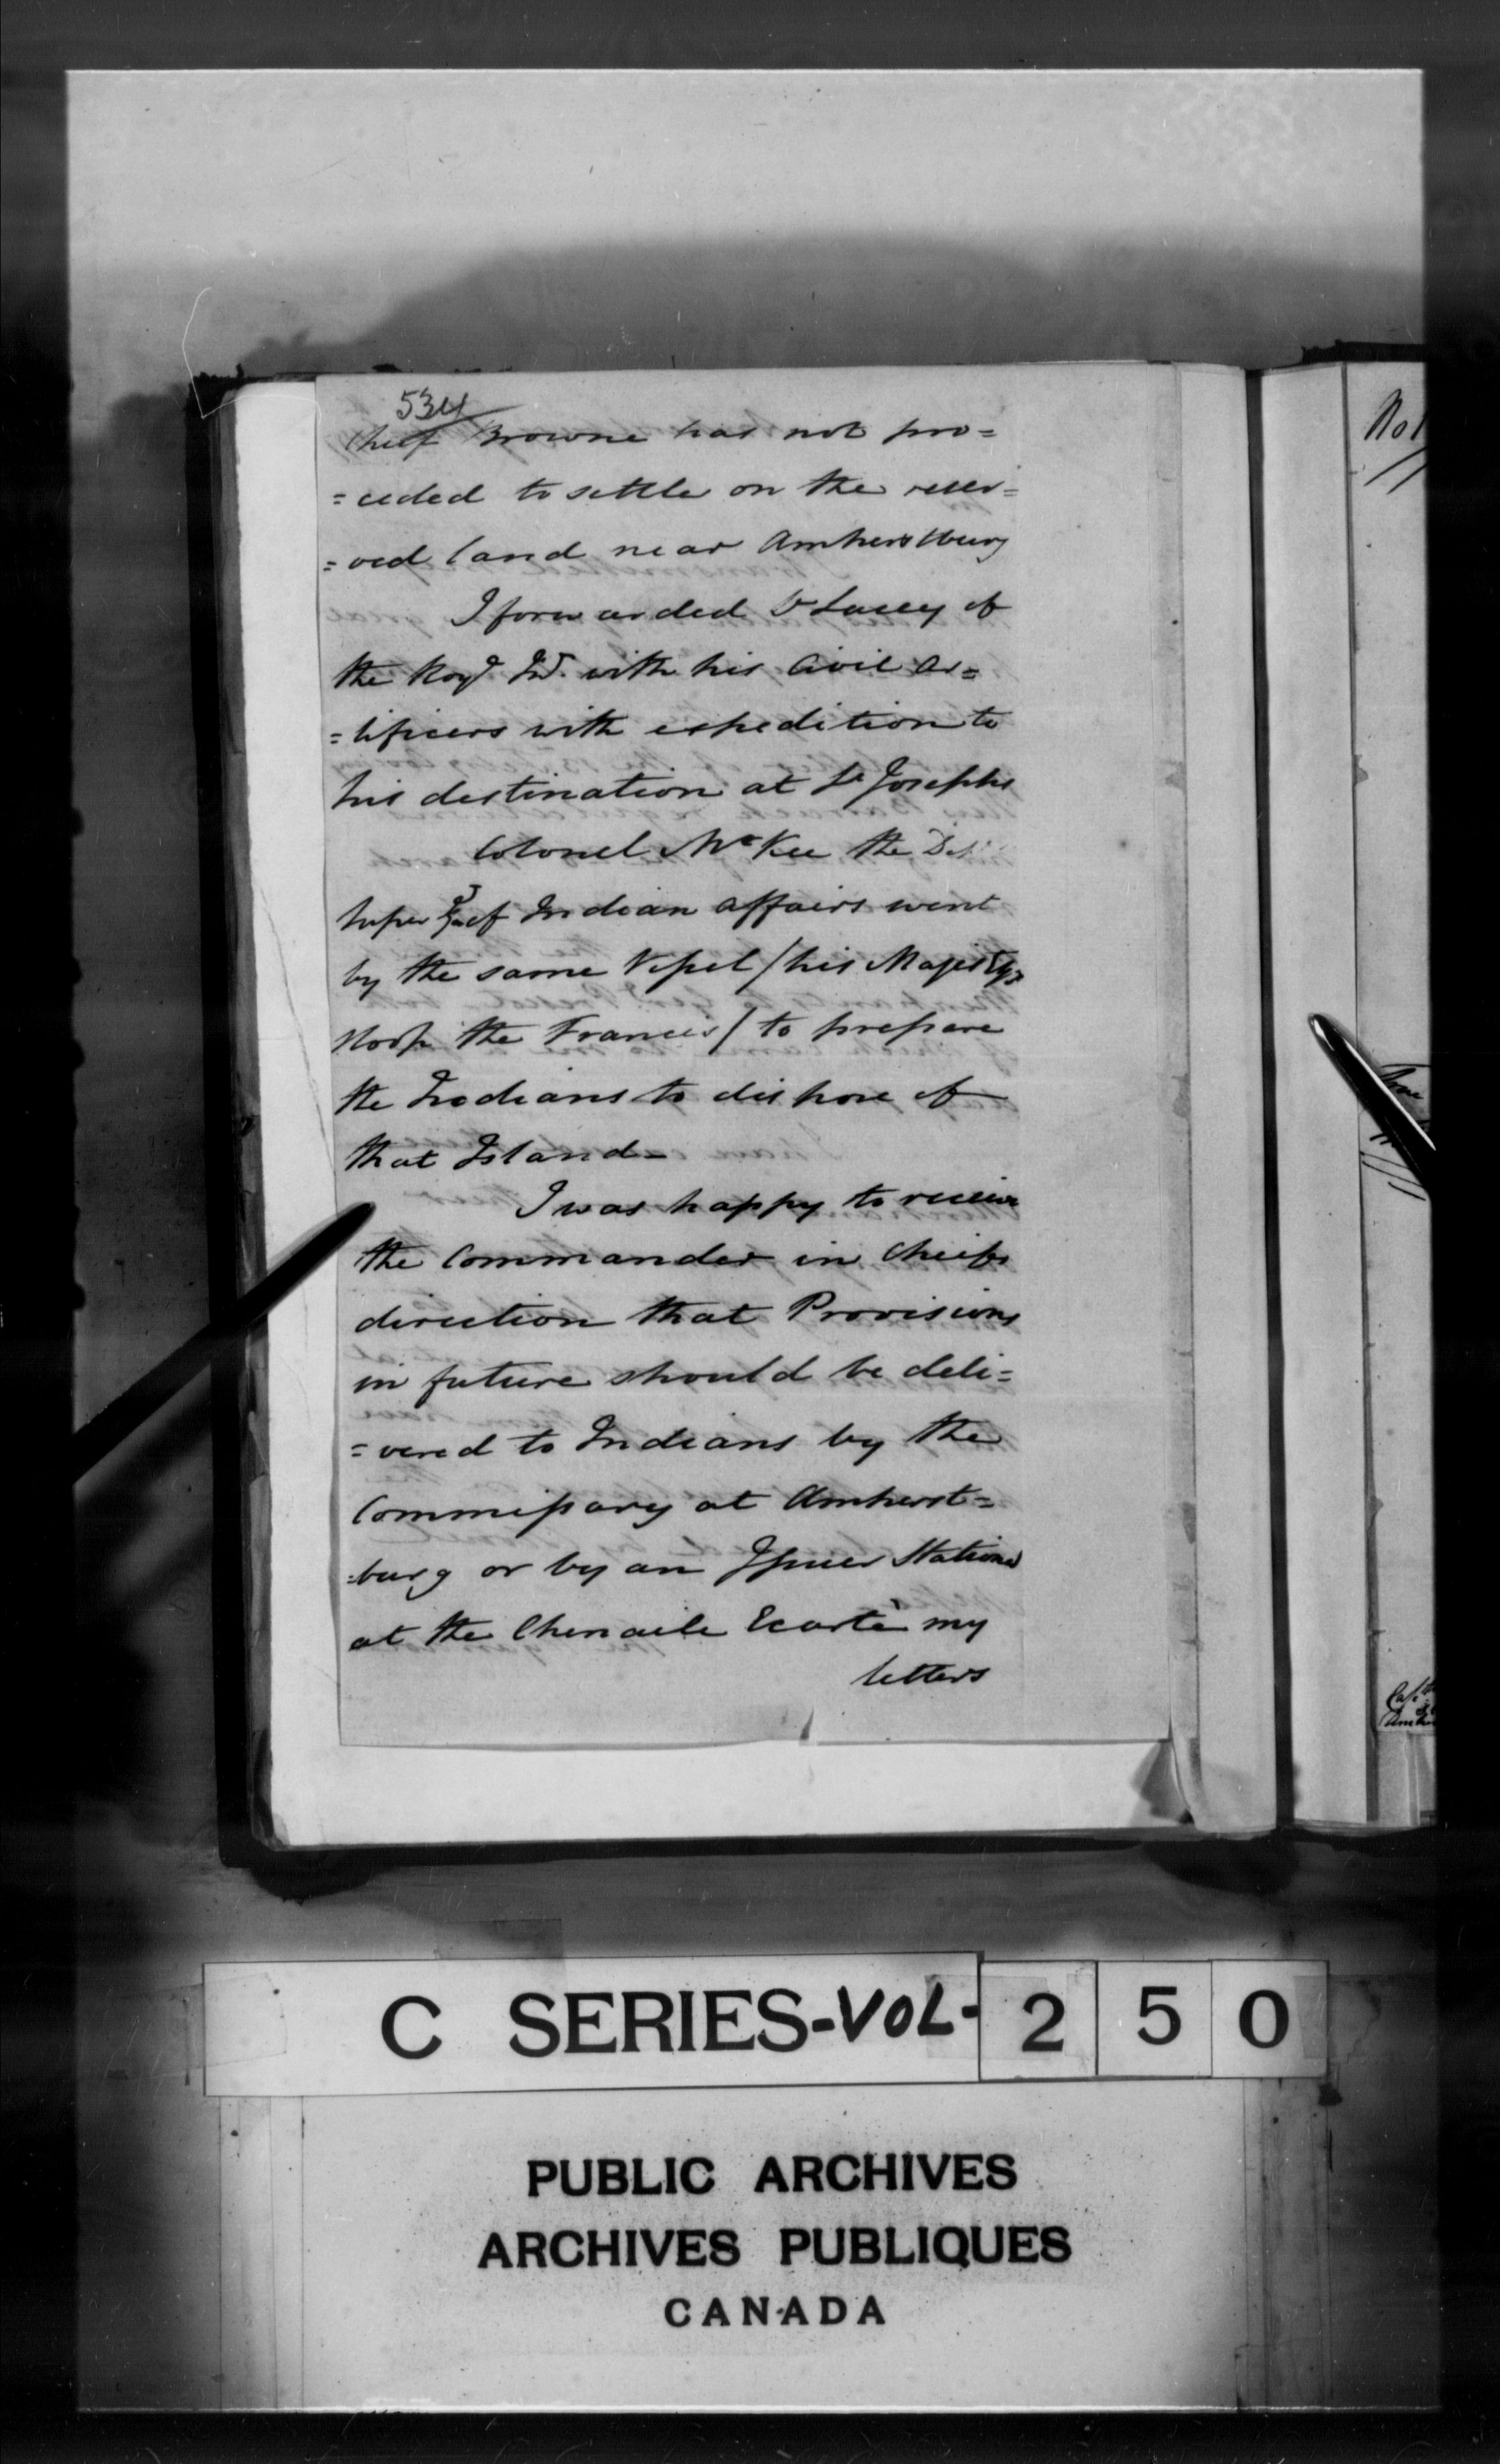 534
Chief Browne has not pro=
=ceeded to settle on the reser=
=ved land near Amherstburg
I forwarded Lt Lacey of
the Roy.l with his Civil Ar=
=tificers with expedition to
his destination at St Josephs
Colonel McKee the
Super of Indian affairs went
by the same Vessel / his Majestys
sloop the Francis / to prepare
the Indians to dispose of
that Island—
I was happy to receive
the Commander in Cheifs
direction that Provisions
in future should be deli=
=vered to Indians by the
Commissary at Amherst=
=burg or by an Issuer Stationed
at the Chenaile Ecarté my
letters
No 1
C SERIES-VOL-250
PUBLIC ARCHIVES
ARCHIVES PUBLIQUES
CANADA